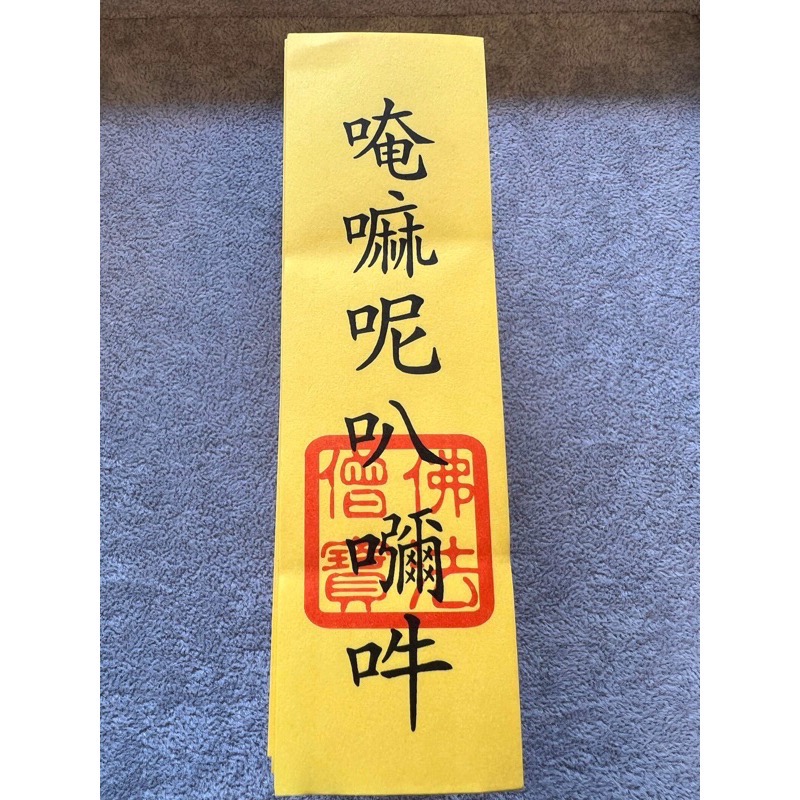 唵嘛呢叭嚩吽
佛法
僧寶